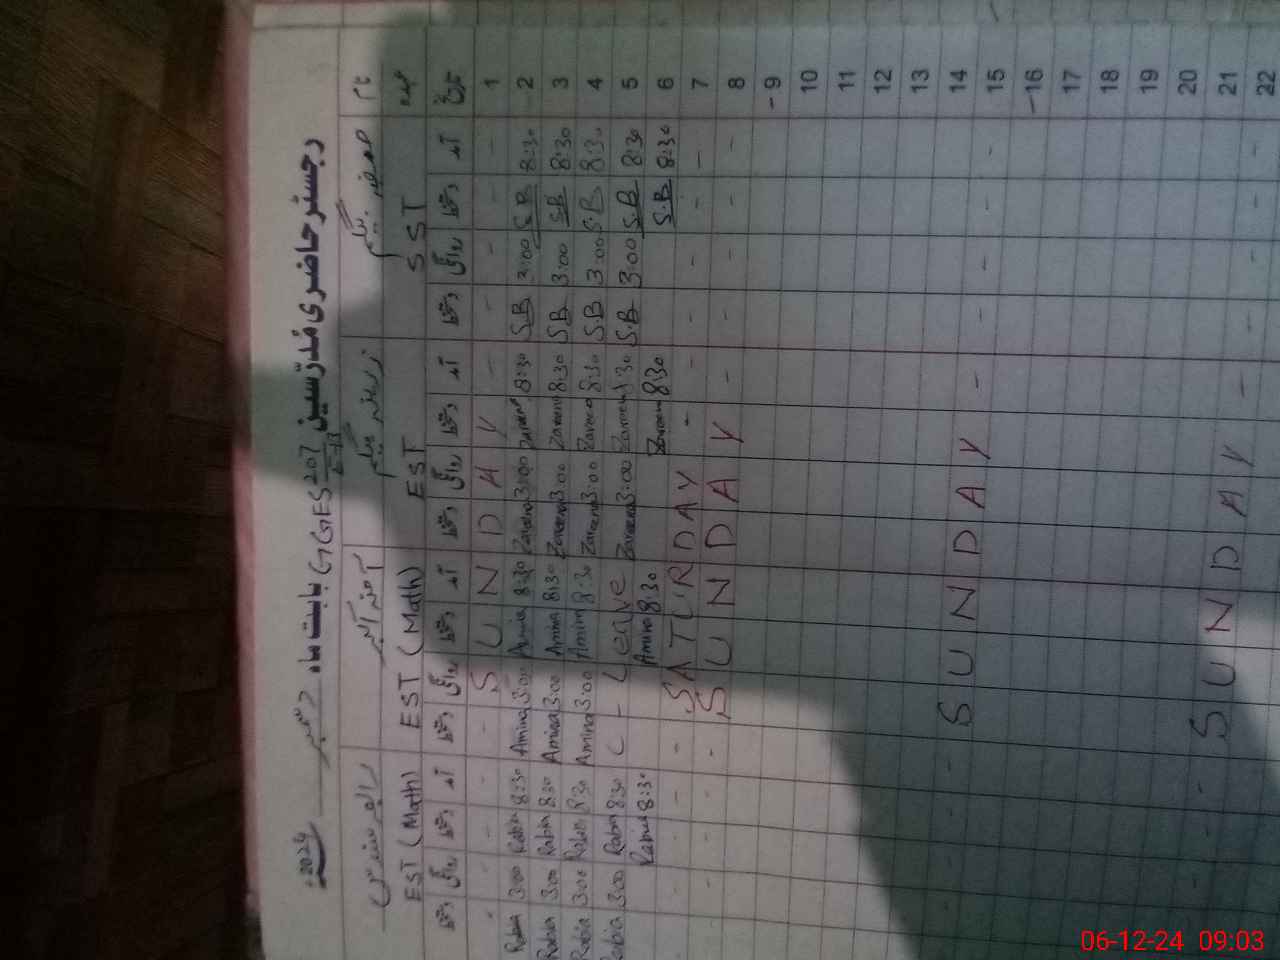 رجسٹر حاضری مدرّسین GGES 207 E.B بابت ماہ دسمبر 2024
نام صغیر بیگم زرینہ بیگم آمنہ اکبر رابعہ
عہدہ SST EST EST (Math) EST (Math)
تاریخ آمد دستخط روانگی دستخط آمد دستخط روانگی دستخط آمد دستخط روانگی دستخط آمد دستخط روانگی دستخط
1 - - - - - SUNDAY - - - -
2 8:30 S.B 3:00 S.B 8:30 Zareena 3:00 Zareena 8:30 Amina 3:00 Amina 8:30 Rabia 3:00 Rabia
3 8:30 S.B 3:00 S.B 8:30 Zareena 3:00 Zareena 8:30 Amina 3:00 Amina 8:30 Rabia 3:00 Rabia
4 8:30 S.B 3:00 S.B 8:30 Zareena 3:00 Zareena 8:30 Amina 3:00 Amina 8:30 Rabia 3:00 Rabia
5 8:30 S.B 3:00 S.B 8:30 Zareena 3:00 Zareena C - Leave 8:30 Rabia 3:00 Rabia
6 8:30 S.B 8:30 Zareena 8:30 Amina 8:30 Rabia
7 - - - - - - SATURDAY - - - -
8 - - - - - SUNDAY - - - -
9
10
11
12
13
14
15 - - - - - SUNDAY - - - -
16
17
18
19
20
21
22 - - - - - SUNDAY - - - -
06-12-24 09:03